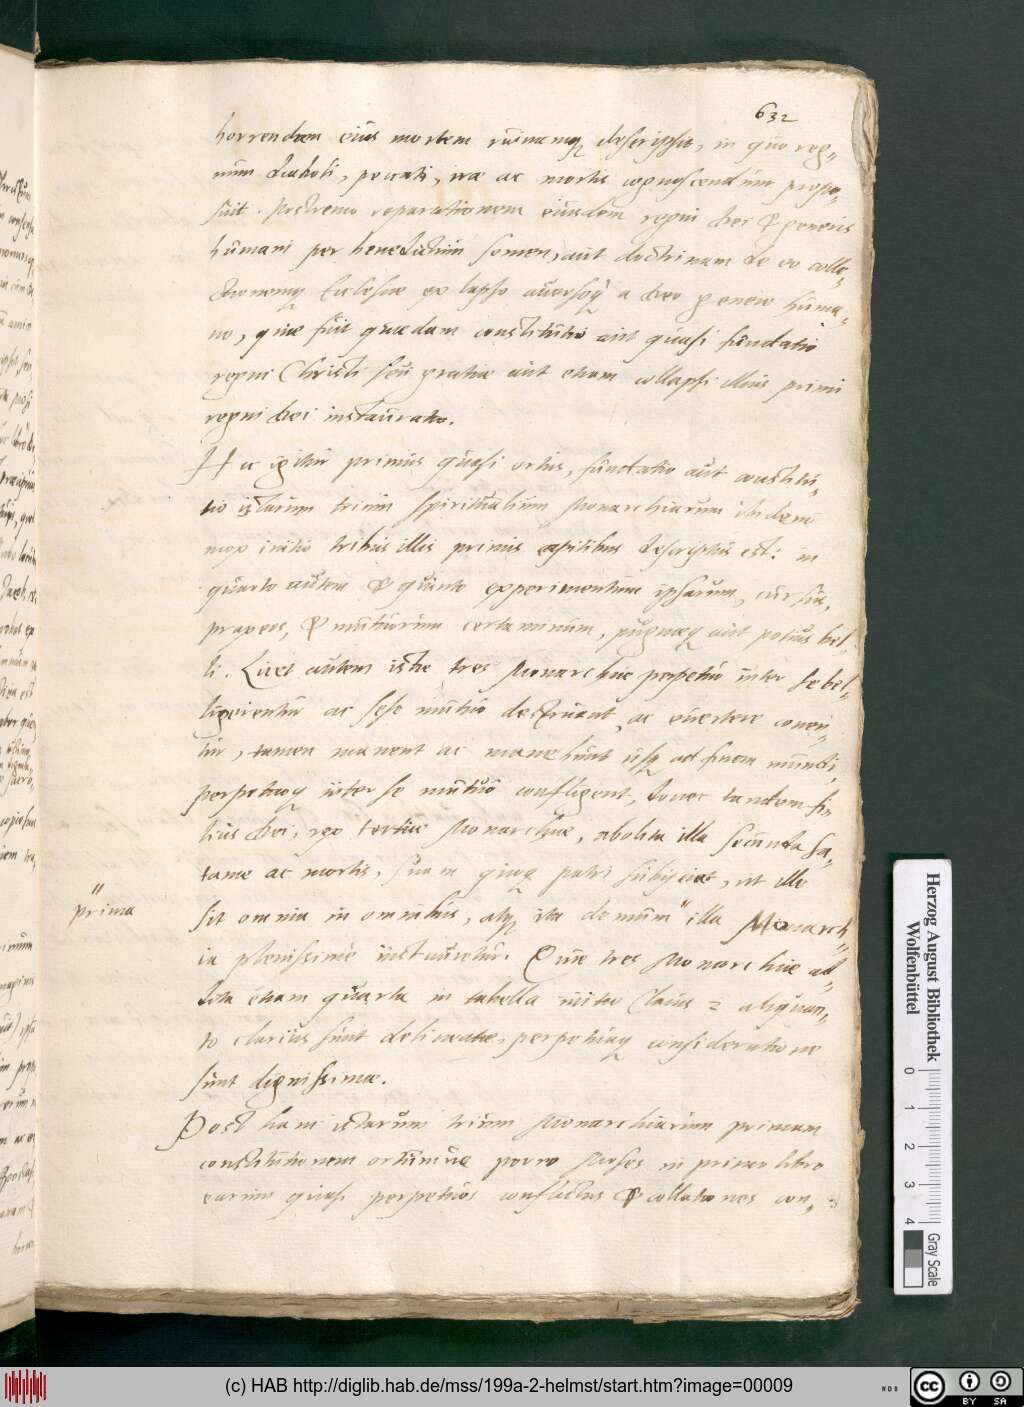 632
horrendam eius mortem ruinamq; descripsit, in quo reg-
num diaboli, peccati, irae ac mortis cognoscendum propo-
suit. Postremo reparationem eiusdem regni Dei & generis
humani per benedictum semen, aut doctrinam de eo colle-
ctionemq; Ecclesiae ex lapso aversoq; a Deo genere huma-
no, quae fuit quaedam constitutio aut quasi fundatio
regni Christi seu gratiae aut etiam collapsi illius primi
regni Dei instauratio.
Hic igitur primus quasi ortus, fundatio aut constitu-
tio istarum trium spiritualium Monarchiarum ibidem
mox initio tribus illis primis capitibus descriptus est: in
quarto autem & quinto experimentum ipsarum, cursus,
praxeos, & mutuorum certaminum, pugnaeq; aut potius bel-
li. Licet autem istae tres Monarchiae perpetuo inter se bel-
ligerentur ac sese mutuo destruant, ac evertere conen-
tur, tamen manent ac manebunt usq; ad finem mundi,
perpetuoq; inter se mutuo confligent, donec tandem fi-
lius Dei, rex tertiae Monarchiae, abolita illa secunda Sa-
tanae ac mortis, suam quoq; patri subijciat, ut ille
"
prima
sit omnia in omnibus, atq; ita demum " illa Monarch-
ia plenissimè instauretur. Quae tres Monarchiae ad-
dita etiam quarta in tabella initio Clavis 2 aliquan-
to clarius sunt delineatae, perpetuaq; consideratione
sunt dignissimae.
Post hanc istarum trium Monarchiarum primam
constitutionem ortumve porro Moses in primo libro
earum quasi perpetuos conflictus & collationes con-
Herzog August Bibliothek
Wolfenbüttel
0 1 2 3 4
Gray Scale
(c) HAB http://diglib.hab.de/mss/199a-2-helmst/start.htm?image=00009
cc BY SA